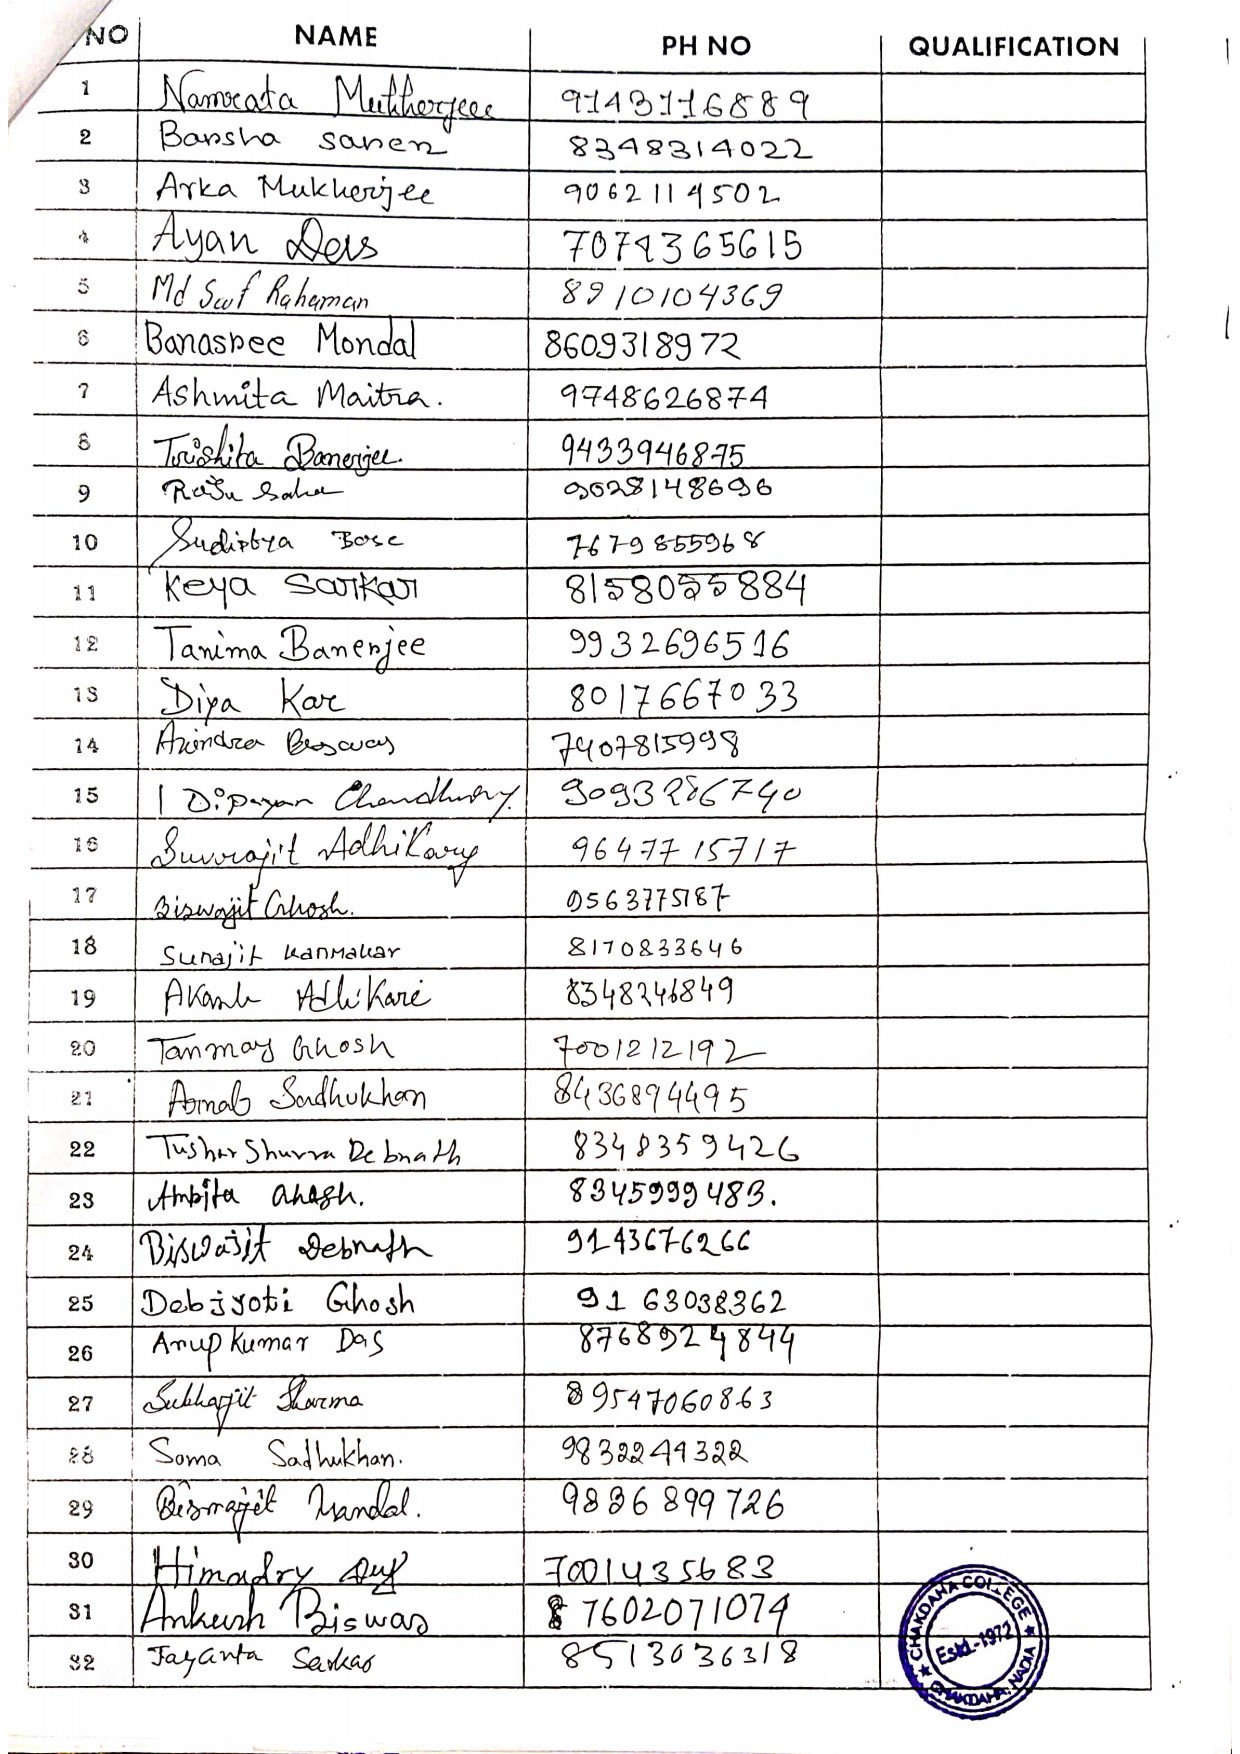 NO NAME PH NO QUALIFICATION
1 Namrata Mukherjee 9143116889
2 Barsha saren 8348314022
3 Arka Mukherjee 9062114502
4 Ayan Das 7074365615
5 Md Saif Rahaman 8910104369
6 Banasree Mondal 8609318972
7 Ashmita Maitra. 9748626874
8 Trishita Banerjee. 9433946875
9 Raju Saha 9028148696
10 Sudipta Bose 7679855968
11 Keya Sarkar 8158055884
12 Tanima Banerjee 9932696516
13 Diya Kar 8017667033
14 Arindra Biswas 7407815998
15 Dipayan Chandhury. 9093286740
16 Suvrajit Adhikary 9647715717
17 Biswajit Ghosh. 9563775187
18 Surajit Karmakar 8170833646
19 Akash Adhikari 8348246849
20 Tanmay Ghosh 7001212192
21 Arnab Sadhukhan 8436894495
22 Tushar Shuvra Debnath 8348359426
23 Arpita Ghosh. 8345999483.
24 Biswajit Debnath 9143676266
25 Debjyoti Ghosh 9163038362
26 Anup Kumar Das 8768924844
27 Subhajit Sharma 89547060863
28 Soma Sadhukhan. 9832244322
29 Biswajit Mandal. 9836899726
30 Himadry 7001435683
31 Ankush Biswas 7602071074
32 Jayanta Sarkar 8513036318
CHAKDAHA COLLEGE
Estd.-1972
CHAKDAHA, NADIA